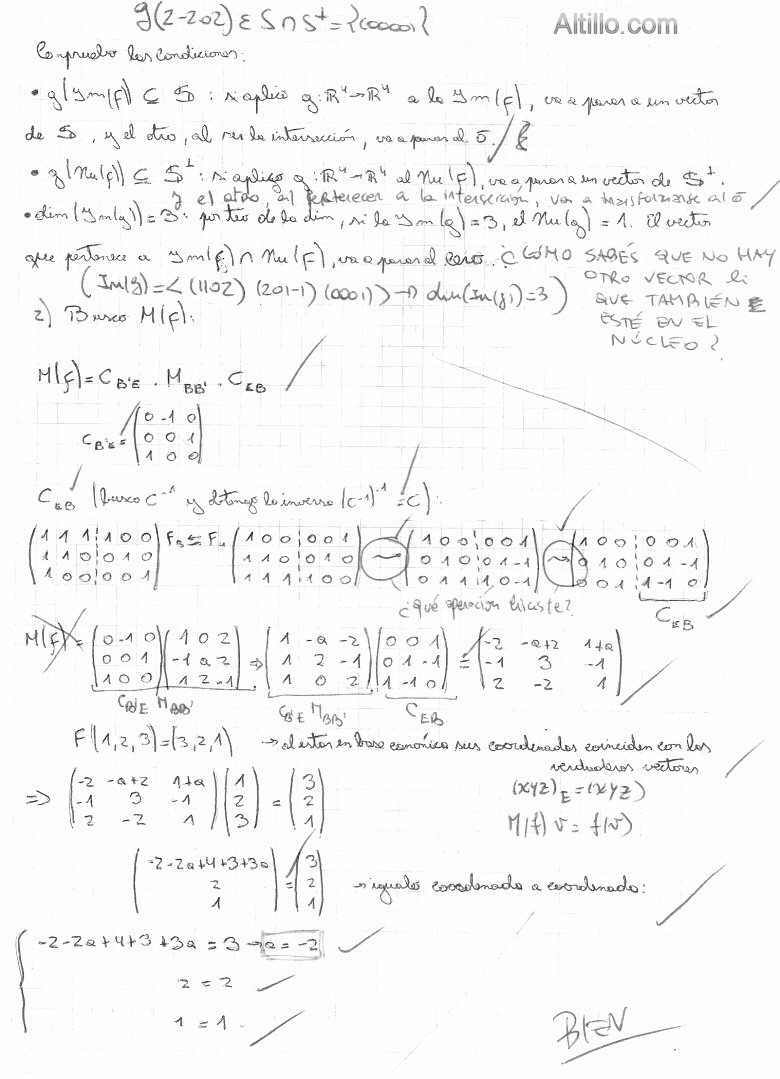 Altillo.com
g(2-202) ε S ∩ S⊥ = {(0000)}
Compruebo las condiciones:
• g(Im(f)) ⊆ S : si aplico g: ℝ⁴→ℝ⁴ a la Im(f), va a parar a un vector
de S, y el otro, al ser la intersección, va a parar al 0.
• g(Nu(f)) ⊆ S⊥ : si aplico g: ℝ⁴→ℝ⁴ al Nu(f), va a parar a un vector de S⊥.
y el otro, al pertecer a la intersección, va a transformarse al 0
• dim(Im(g)) = 3 : por teo de la dim, si la Im(g) = 3, el Nu(g) = 1. El vector
que pertenece a Im(f) ∩ Nu(F), va a parar al cero.
¿CÓMO SABÉS QUE NO HAY
OTRO VECTOR li
QUE TAMBIÉN
ESTÉ EN EL
NÚCLEO?
(Im(g) = < (1102) (201-1) (0001) > → dim(Im(g)) = 3)
2) Busco M(f):
M(f) = C_B'E . M_BB' . C_EB
C_B'E = (0 -1 0
0 0 1
1 0 0)
C_EB (busco C⁻¹ y obtengo la inversa (C⁻¹)⁻¹ = C):
(1 1 1 | 1 0 0) F₃ ⇆ F₁ (1 0 0 | 0 0 1) ~ (1 0 0 | 0 0 1) ~ (1 0 0 | 0 0 1)
(1 1 0 | 0 1 0) (1 1 0 | 0 1 0) (0 1 0 | 0 1 -1) (0 1 0 | 0 1 -1)
(1 0 0 | 0 0 1) (1 1 1 | 1 0 0) (0 1 1 | 1 0 -1) (0 0 1 | 1 -1 0)
¿qué operación hiciste?
C_EB
M(f) = (0 -1 0) (1 0 2) ⇒ (1 -a -2) (0 0 1) = (-2 -a+2 1+a)
(0 0 1) (-1 a 2) (1 2 -1) (0 1 -1) (-1 3 -1)
(1 0 0) (1 2 -1) (1 0 2) (1 -1 0) (2 -2 1)
C_B'E M_BB' C_B'E M_BB' C_EB
F(1,2,3) = (3,2,1) → al estar en base canónica sus coordenadas coinciden con los
verdaderos vectores
⇒ (-2 -a+2 1+a) (1) = (3)
(-1 3 -1) (2) (2)
(2 -2 1) (3) (1)
(xyz)_E = (xyz)
M(f) v = f(v)
(-2-2a+4+3+3a) = (3)
(2) (2)
(1) (1)
→ igualo coordenada a coordenada:
-2-2a+4+3+3a = 3 → a = -2
2 = 2
1 = 1
BIEN